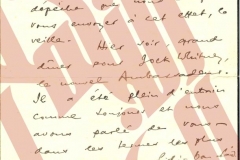 dépêche que nous
vous envoyer à cet effet, la
veille. Hier soir, grand
dîner pour Jock Whitney,
le nouvel Ambassadeur.
Il a été plein d'entrain
comme toujours et nous
avons parlé de vous
dans les termes les plus